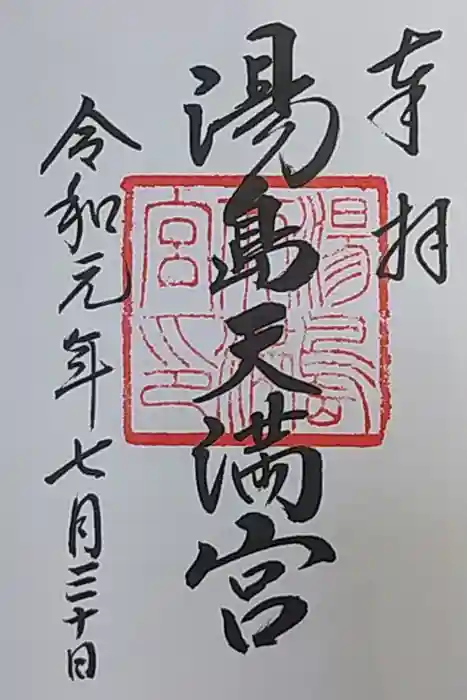 奉拝
湯島天満宮
湯島天満宮印
令和元年七月三十日